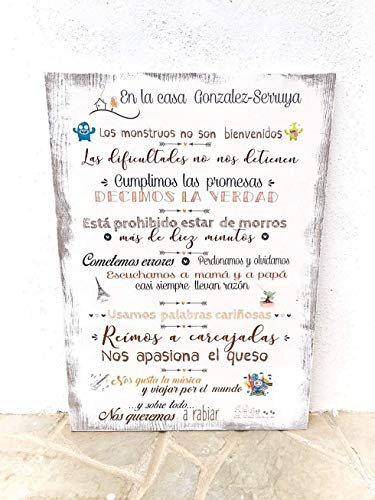 En la casa Gonzalez-Serruya
Los monstruos no son bienvenidos
Las dificultades no nos detienen
Cumplimos las promesas
DECIMOS LA VERDAD
Está prohibido estar de morros
más de diez minutos
Cometemos errores Perdonamos y olvidamos
Escuchamos a mamá y a papá
casi siempre llevan razón
Usamos palabras cariñosas
Reímos a carcajadas
Nos apasiona el queso
Nos gusta la música
y viajar por el mundo
...y sobre todo...
Nos queremos a rabiar